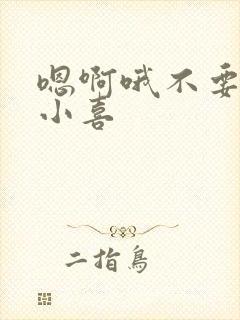 嗯啊哦不要
小喜
二指鸟